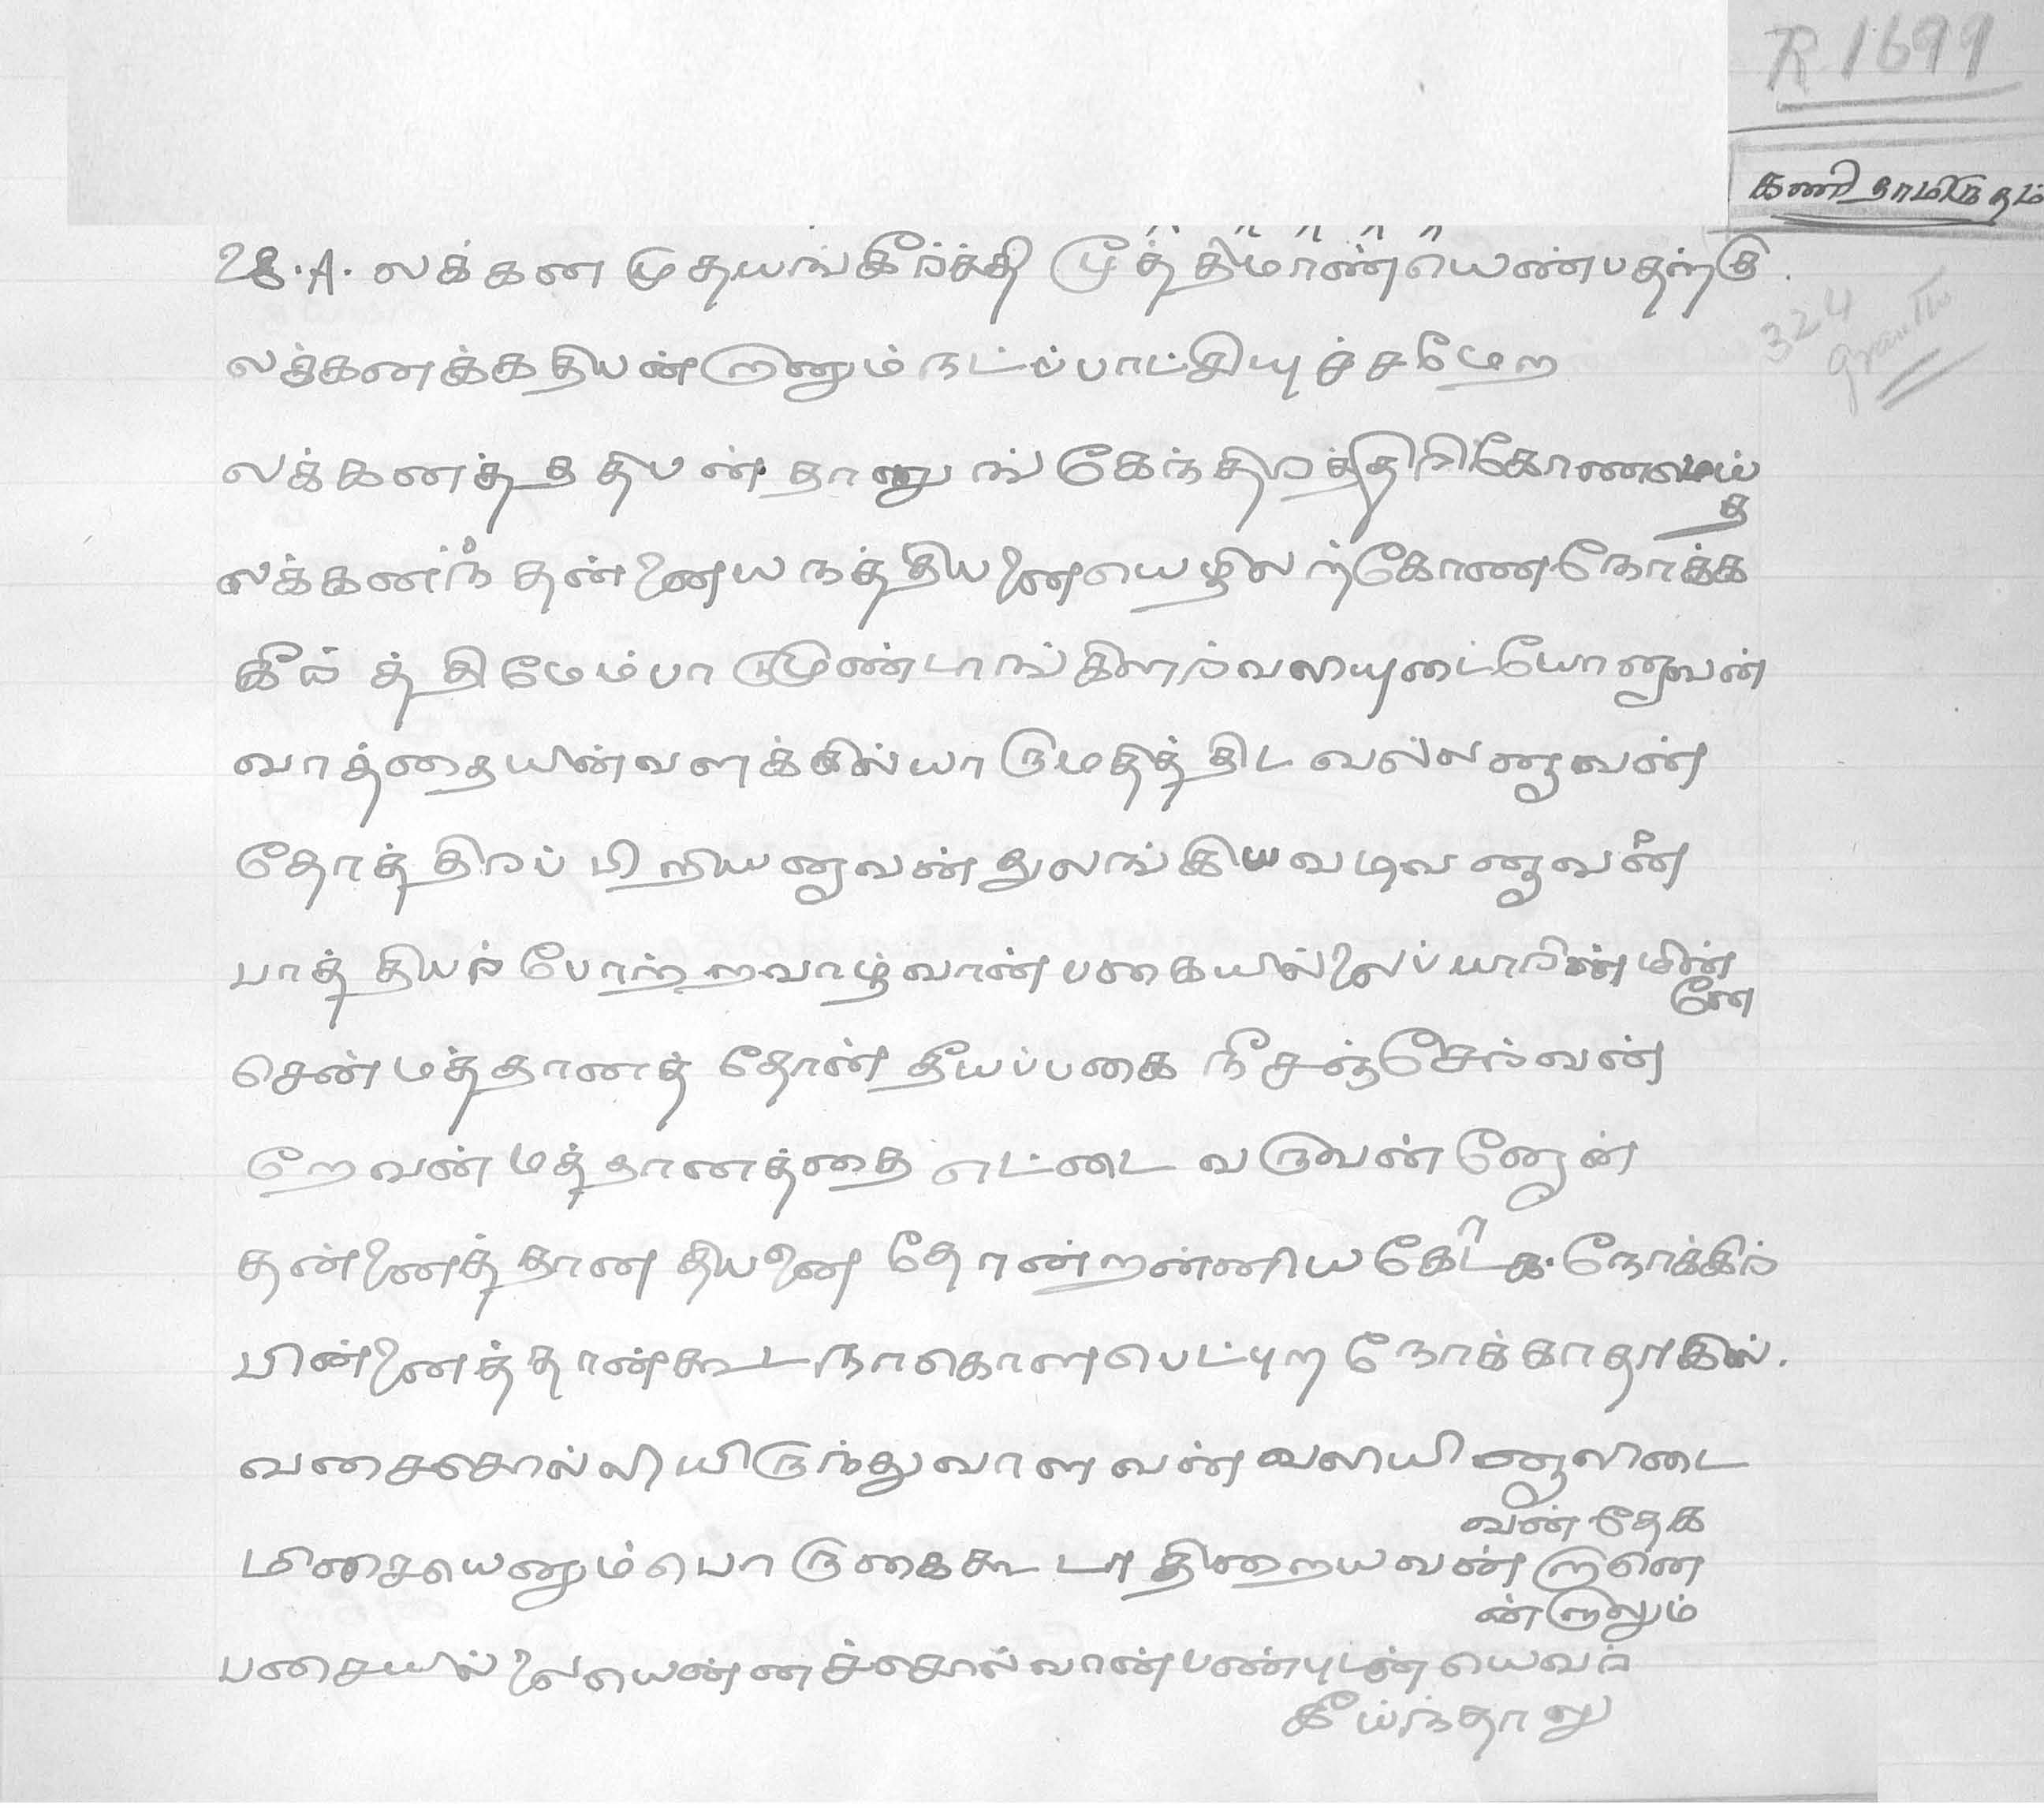 R 1699
கணிதாமிருதம்
28.A. லக்கன முதயங்கீர்த்தி மூத்திமாண்யெண்பதற்கு.
324
லக்கனக்கதியன்றானும் நட்ப்பாட்சியுச்சமேற
லக்கனத்ததிபன் தானுங் கேந்திரத்திரிகோணமெய்த
லக்கனந் தன்னையநத்தியனையெழிலற்கோணநோக்க
கீர்த்திமேம்பாடுமுண்டாங்கிளர்வலியுடையோனவன்
வாத்தையின்வளக்கில்யாருமதித்திட வல்லனவன்
தோத்திரப் பிறியனவன் துலங்கியவடிவனவன்
பாத்தியர் போற்றவாழ்வான் பகையில்லைப்யாரின்மின்னே
சென்மத்தானத் தோன் தீயப்பகை நீசஞ்சேர்வன்
றேவன்மத்தானத்தை எட்டை வருவன்னேன்
தன்னைத்தான தியனை தோன்றன்னிய கேடக நோக்கிர்
பின்னைத்தான்கூடநாகொளபெட்புற நோக்காதாகில்.
வசைசொல்லியிருந்துவாளவன் வலியினாலிடை
மிசையெனும்பொருகைகூடாதிறையவன் வீண்தேகறானென்றாலும்
பசையில்லையென்னச்சொல்வான்பண்புடன் யெவர்கீய்ந்தாலு